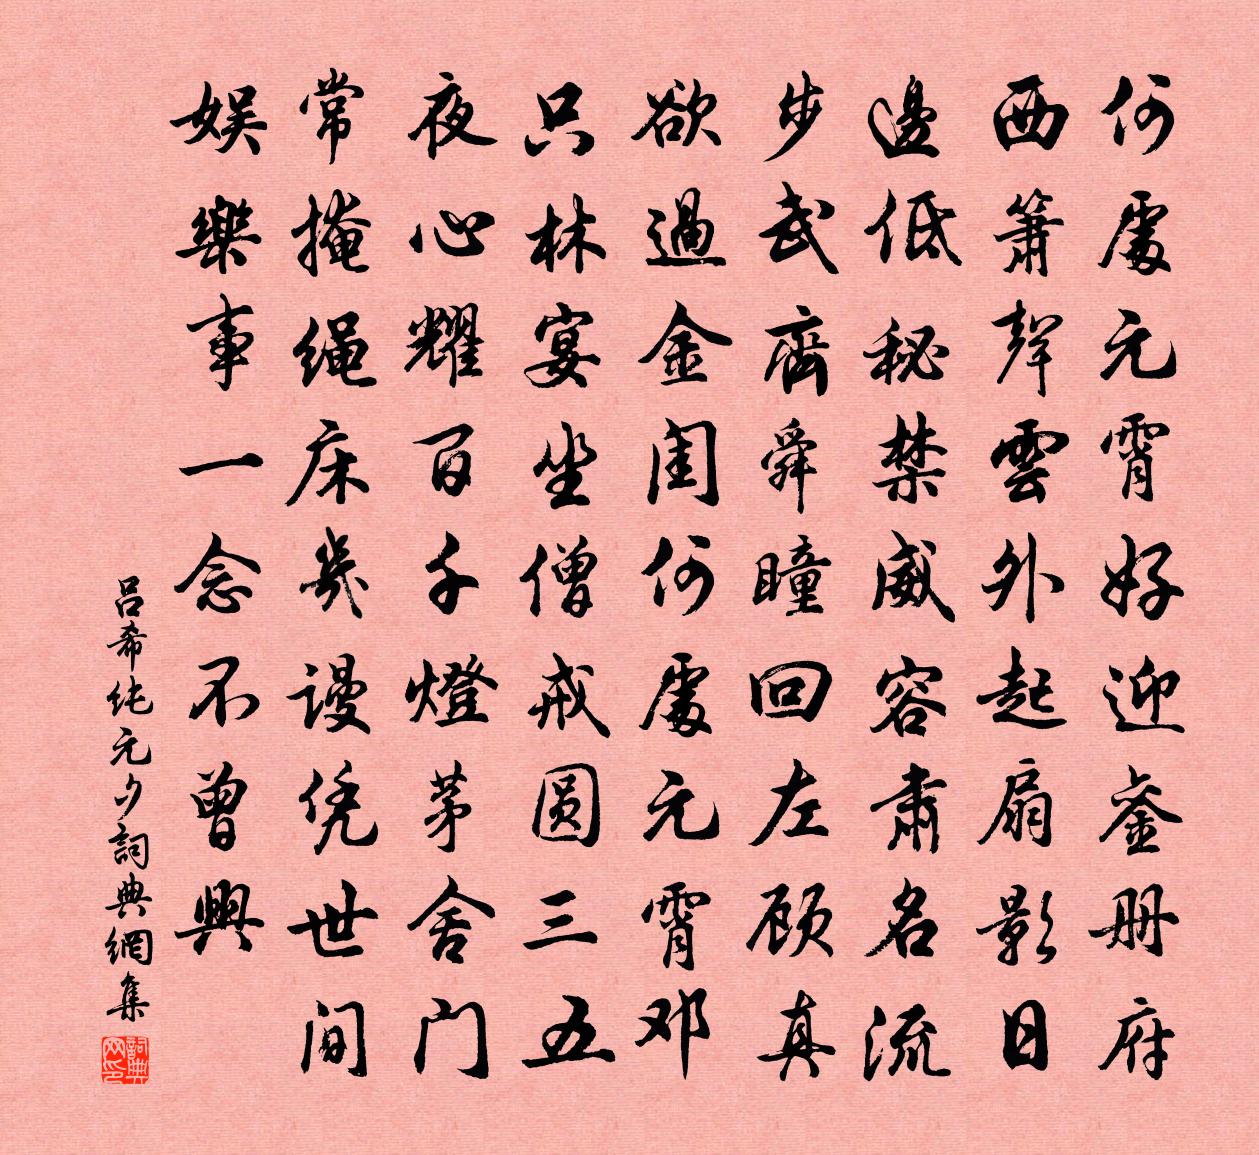 何處元宵好迎銮册府
西簫聲雲外起扇影日
邊低秘禁威容肅名流
步武齊舜瞳回左顾真
欲過金闺何處元宵邓
只林宴坐僧戒圆三五
夜心耀百千燈茅舍门
常掩绳床幾谩凭世间
娱樂事一念不曾興
吕希纯元夕詞典網集
詞典网印